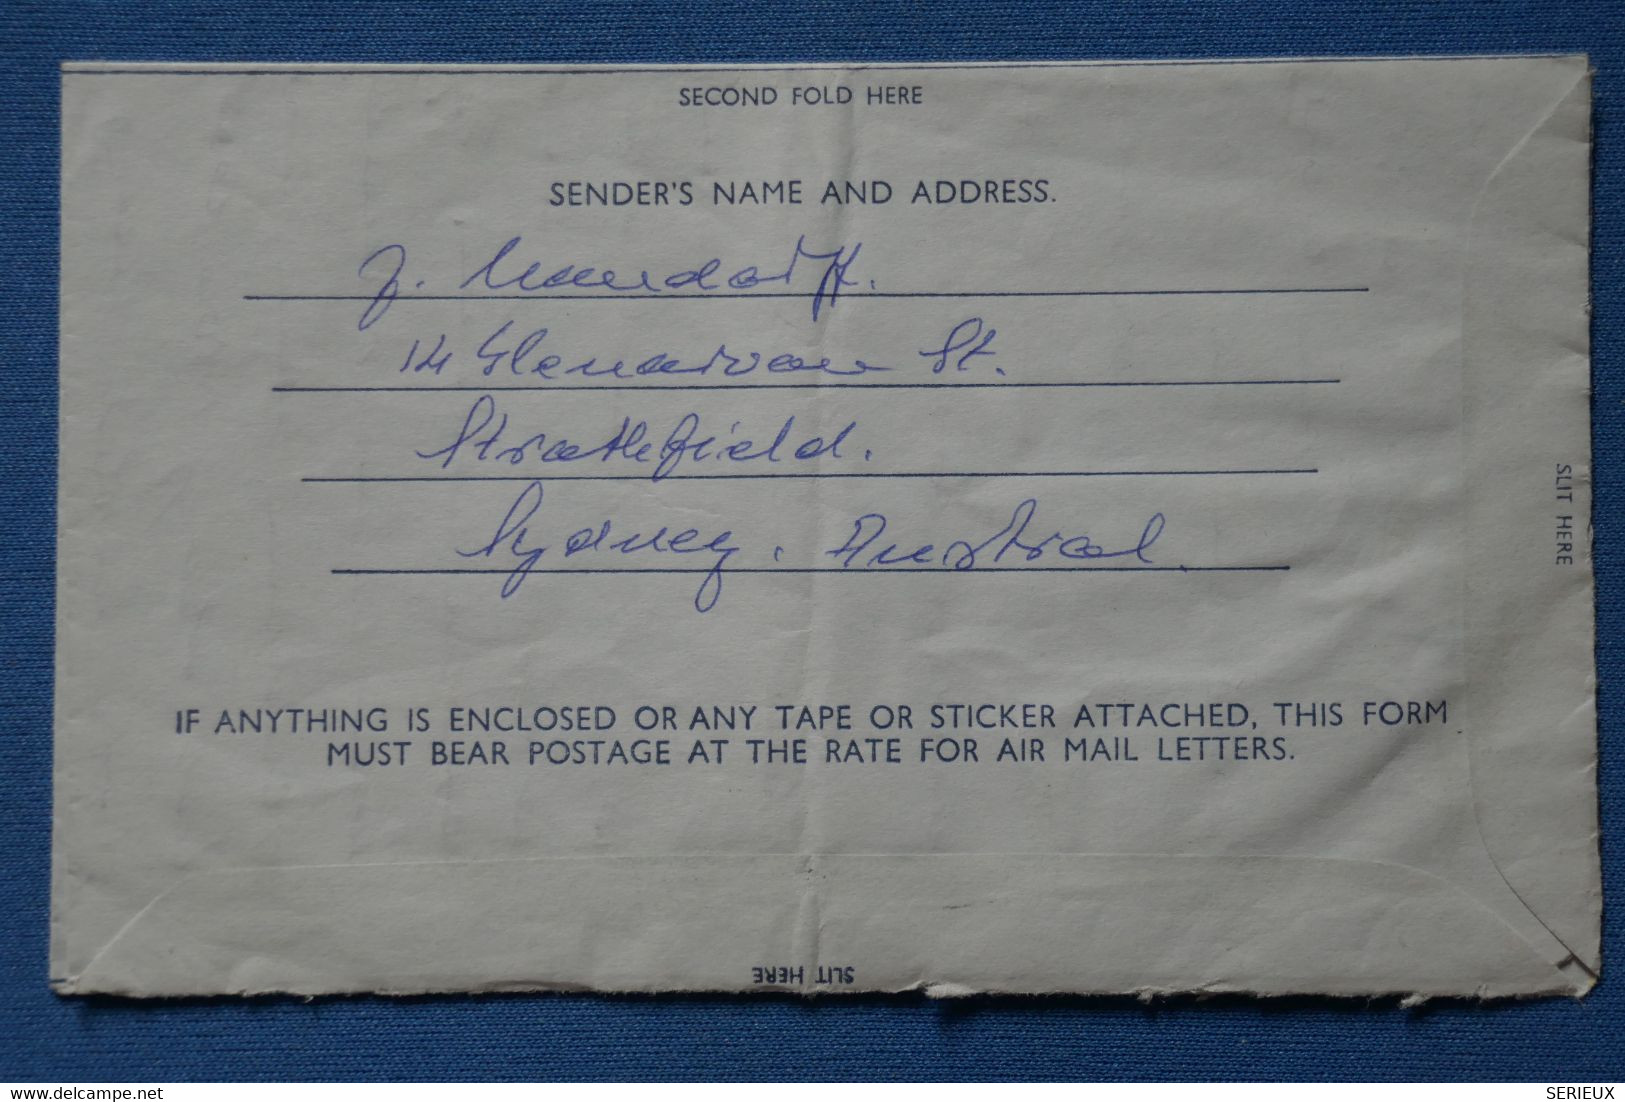 SECOND FOLD HERE
SENDER'S NAME AND ADDRESS.
J.
14 Glenarvon St.
Strathfield.
Sydney. Austral.
SLIT HERE
IF ANYTHING IS ENCLOSED OR ANY TAPE OR STICKER ATTACHED, THIS FORM
MUST BEAR POSTAGE AT THE RATE FOR AIR MAIL LETTERS.
SLIT HERE
delcampe.net
SERIEUX